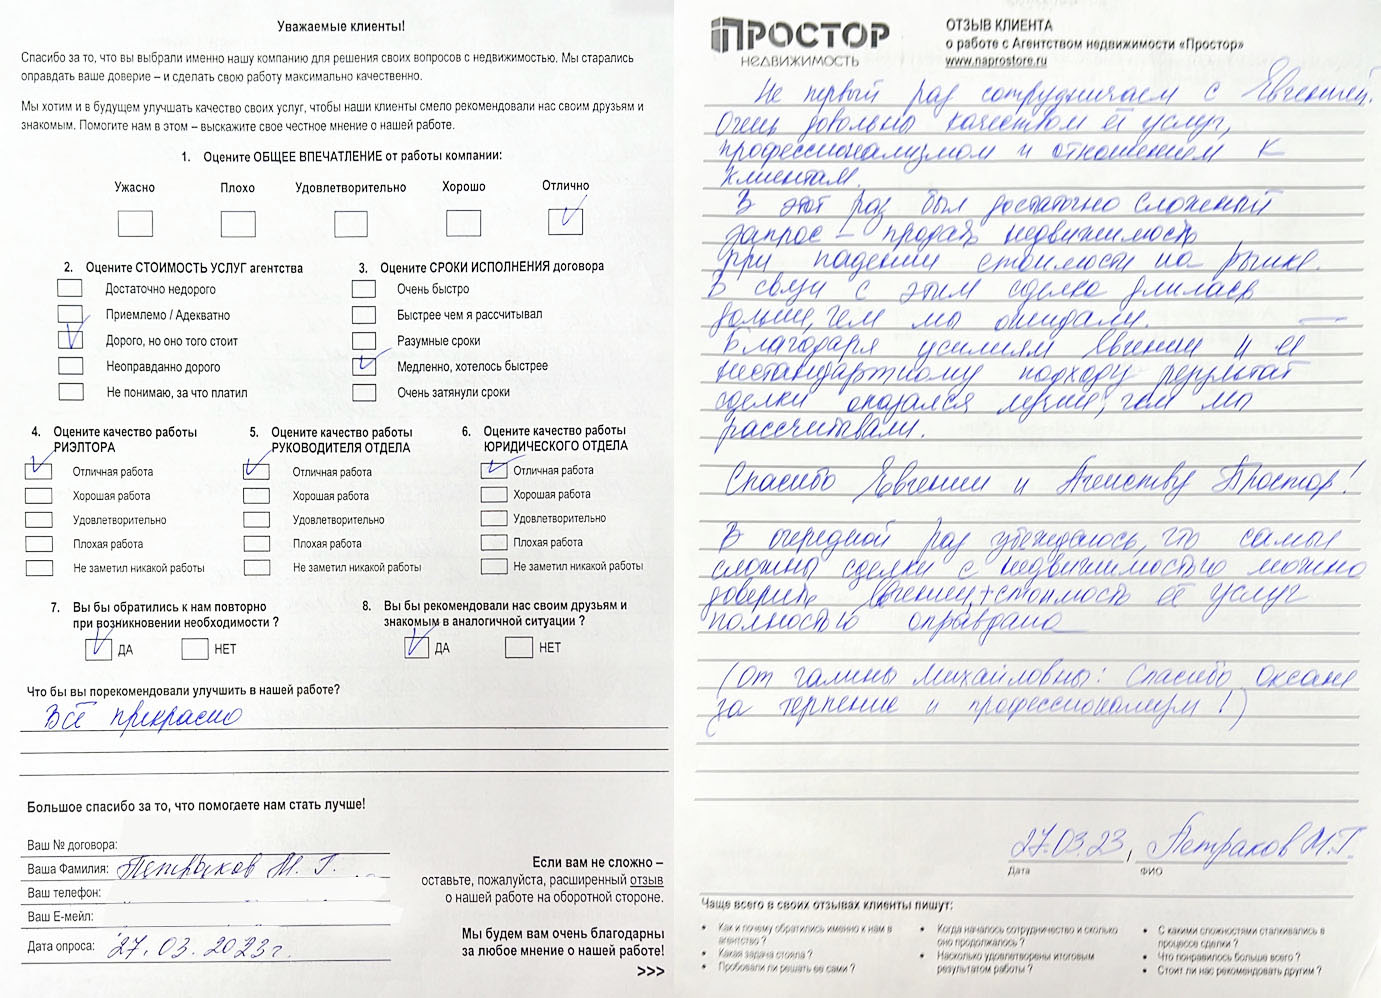 Уважаемые клиенты!
Спасибо за то, что вы выбрали именно нашу компанию для решения своих вопросов с недвижимостью. Мы старались
оправдать ваше доверие – и сделать свою работу максимально качественно.
Мы хотим и в будущем улучшать качество своих услуг, чтобы наши клиенты смело рекомендовали нас своим друзьям и
знакомым. Помогите нам в этом – выскажите свое честное мнение о нашей работе.
1. Оцените ОБЩЕЕ ВПЕЧАТЛЕНИЕ от работы компании:
Ужасно Плохо Удовлетворительно Хорошо Отлично
2. Оцените СТОИМОСТЬ УСЛУГ агентства
Достаточно недорого
Приемлемо / Адекватно
Дорого, но оно того стоит
Неоправданно дорого
Не понимаю, за что платил
3. Оцените СРОКИ ИСПОЛНЕНИЯ договора
Очень быстро
Быстрее чем я рассчитывал
Разумные сроки
Медленно, хотелось быстрее
Очень затянули сроки
4. Оцените качество работы
РИЭЛТОРА
Отличная работа
Хорошая работа
Удовлетворительно
Плохая работа
Не заметил никакой работы
5. Оцените качество работы
РУКОВОДИТЕЛЯ ОТДЕЛА
Отличная работа
Хорошая работа
Удовлетворительно
Плохая работа
Не заметил никакой работы
6. Оцените качество работы
ЮРИДИЧЕСКОГО ОТДЕЛА
Отличная работа
Хорошая работа
Удовлетворительно
Плохая работа
Не заметил никакой работы
7. Вы бы обратились к нам повторно
при возникновении необходимости ?
ДА НЕТ
8. Вы бы рекомендовали нас своим друзьям и
знакомым в аналогичной ситуации ?
ДА НЕТ
Что бы вы порекомендовали улучшить в нашей работе?
Всё прекрасно
Большое спасибо за то, что помогаете нам стать лучше!
Ваш № договора:
Ваша Фамилия: Петраков М. Г.
Ваш телефон:
Ваш E-мейл:
Дата опроса: 27.03.2023г.
Если вам не сложно –
оставьте, пожалуйста, расширенный отзыв
о нашей работе на оборотной стороне.
Мы будем вам очень благодарны
за любое мнение о нашей работе!
>>>
ПРОСТОР
НЕДВИЖИМОСТЬ
ОТЗЫВ КЛИЕНТА
о работе с Агентством недвижимости «Простор»
www.naprostore.ru
Не первый раз сотрудничаем с Евгенией.
Очень довольны качеством её услуг,
профессионализмом и отношением к
клиентам.
В этот раз был достаточно сложный
запрос – продать недвижимость
при падении стоимости на рынке.
В связи с этим сделка длилась
дольше, чем мы ожидали.
Благодаря усилиям Евгении и её
нестандартному подходу результат
сделки оказался лучше, чем мы
рассчитывали.
Спасибо Евгении и Агенству Простор!
В очередной раз убеждаюсь, что самые
сложны сделки с недвижимостью можно
доверить Евгении, стоимость её услуг
полностью оправдана
(От Галины Михайловны: Спасибо Оксане
за терпение и профессионализм!)
27.03.23, Петраков М.Г.
Дата ФИО
Чаще всего в своих отзывах клиенты пишут:
• Как и почему обратились именно к нам в
агентство ?
• Какая задача стояла ?
• Пробовали ли решать ее сами ?
• Когда началось сотрудничество и сколько
оно продолжалось ?
• Насколько удовлетворены итоговым
результатом работы ?
• С какими сложностями сталкивались в
процессе сделки ?
• Что понравилось больше всего ?
• Стоит ли нас рекомендовать другим ?